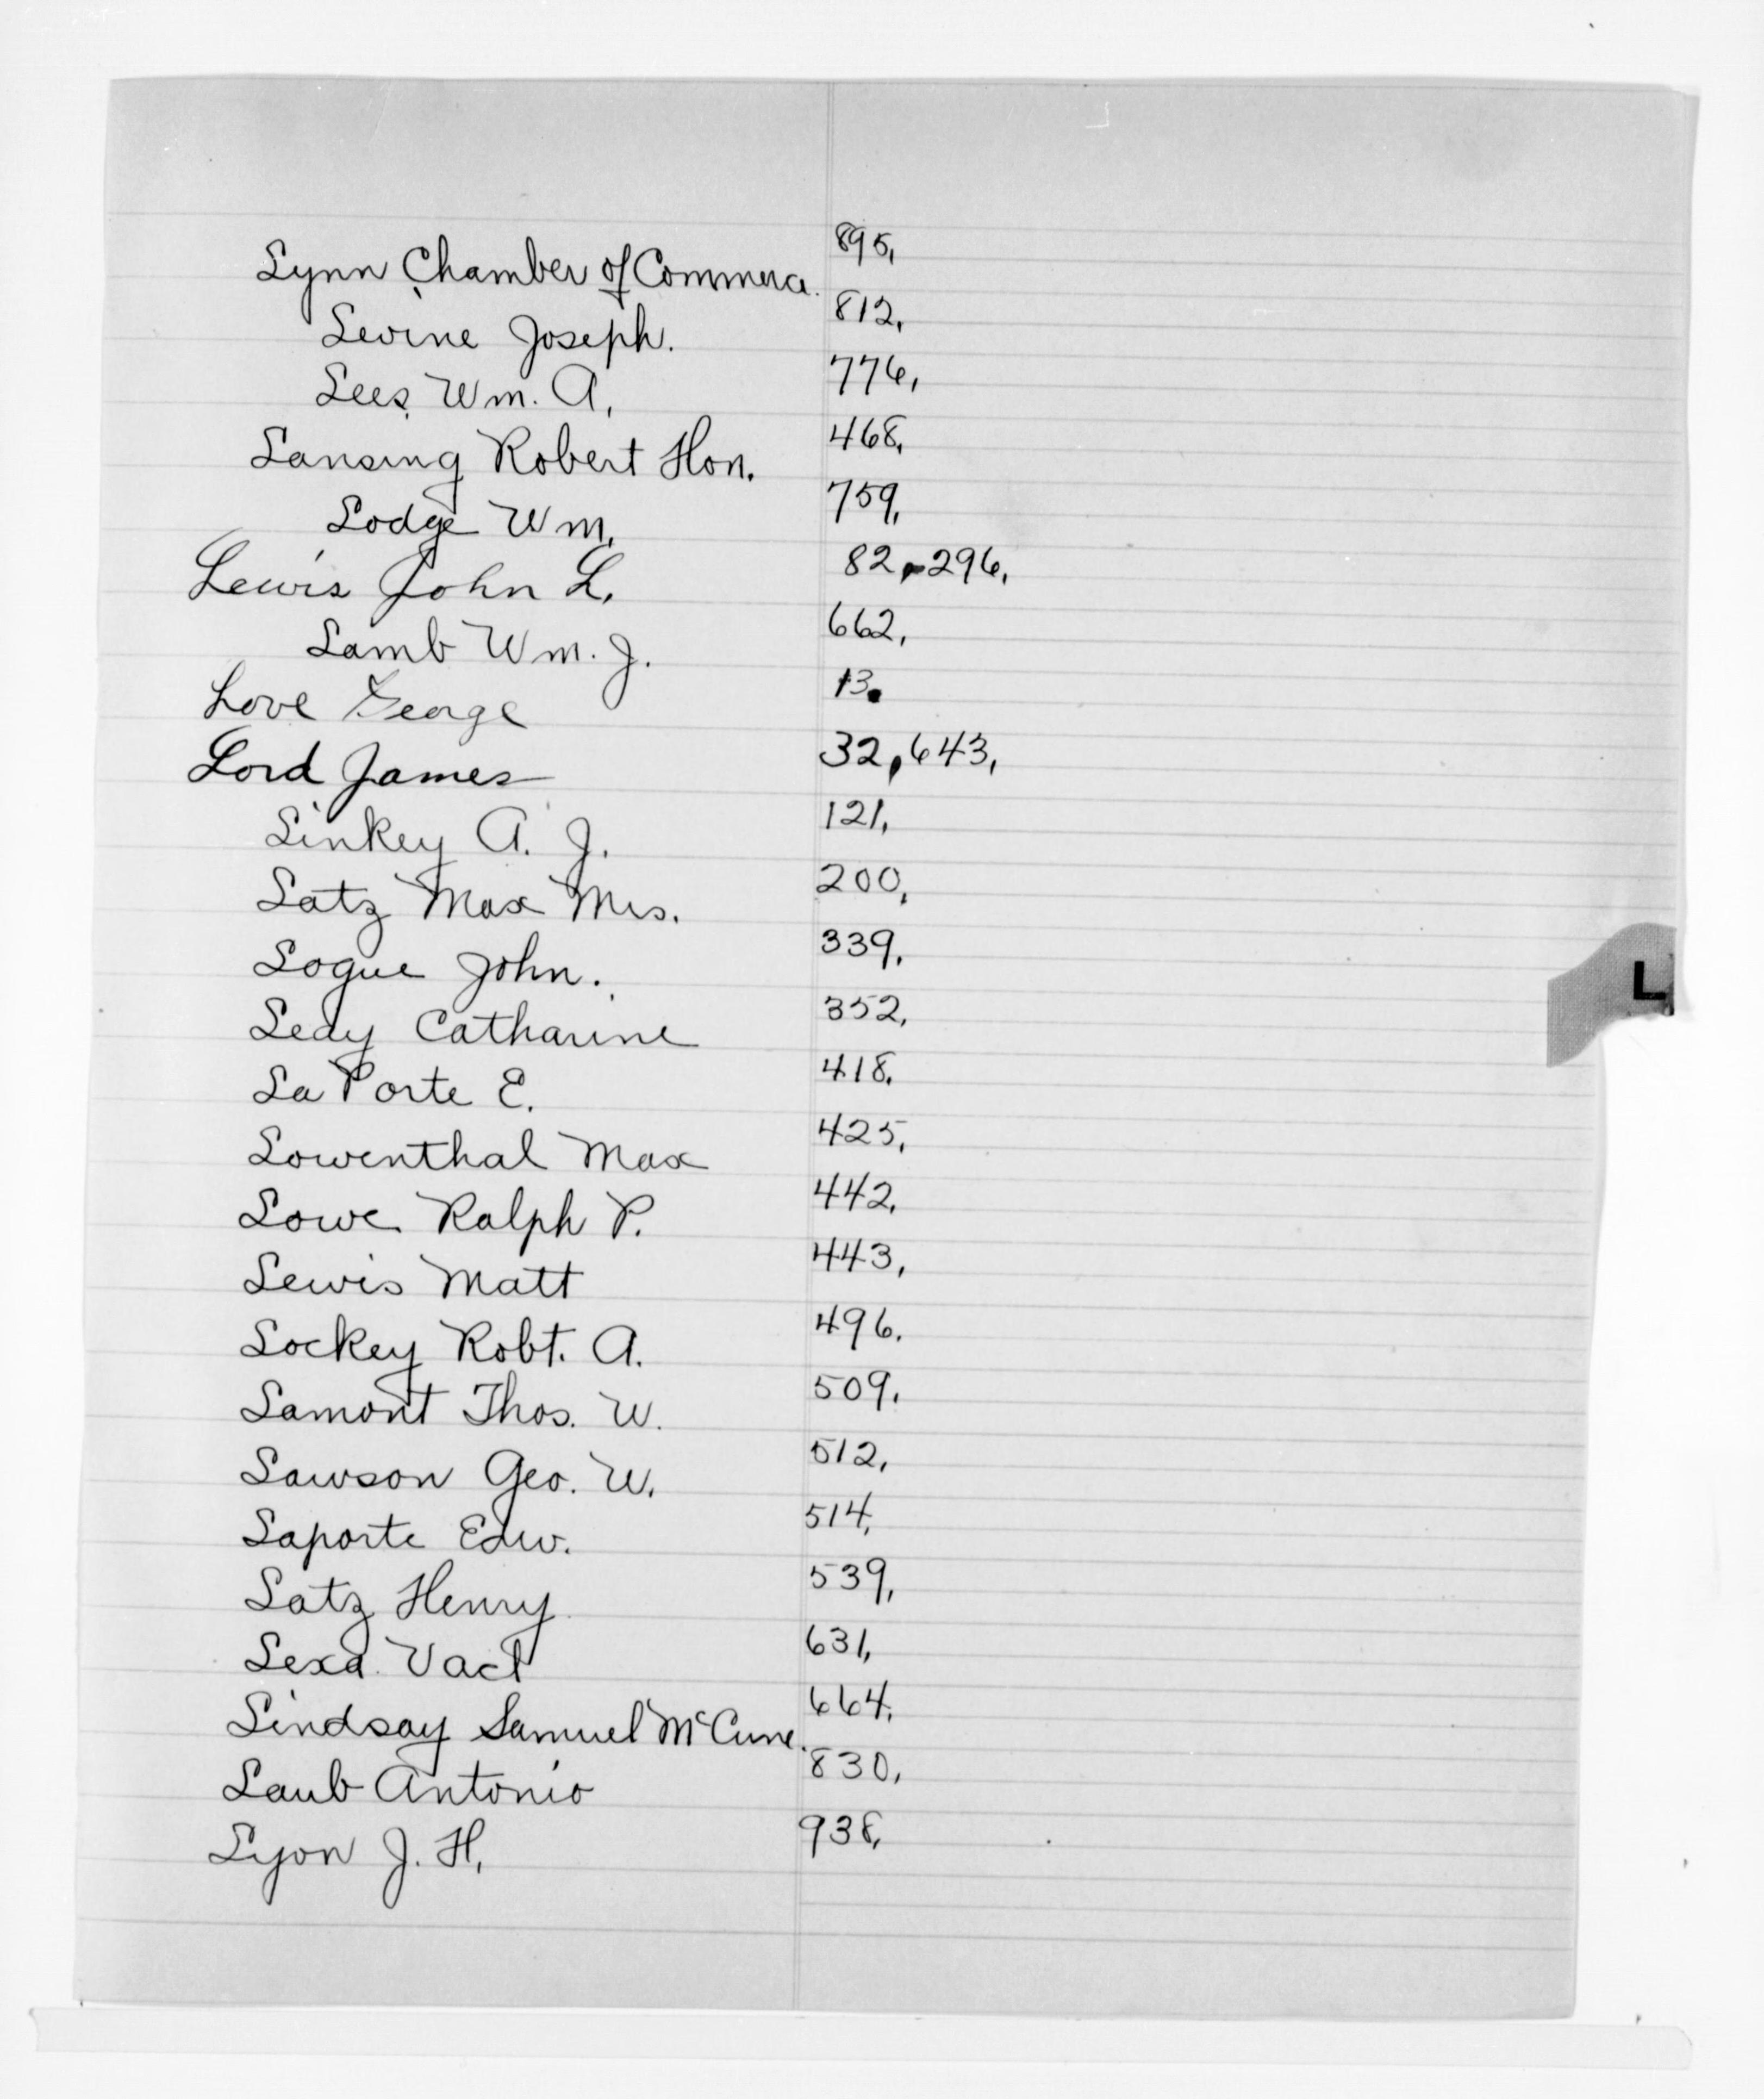 Lynn Chamber of Commerce. 895,
Levine Joseph. 812,
Lees Wm. A, 776,
Lansing Robert Hon. 468,
Lodge Wm, 759,
Lewis John L. 82, 296,
Lamb Wm. J. 662,
Love George 13.
Lord James 32, 643,
Linkey A. J. 121,
Latz Max Mrs. 200,
Logue John. 339,
Ledy Catharine 352,
La Porte E. 418,
Lowenthal Max 425,
Lowe Ralph P. 442,
Lewis Matt 443,
Lockey Robt. A. 496.
Lamont Thos. W. 509,
Lawson Geo. W. 512,
Laporte Edw. 514,
Latz Henry 539,
Lexa Vacl 631,
Lindsay Samuel McCune. 664,
Laub Antonio 830,
Lyon J. H, 938,
L